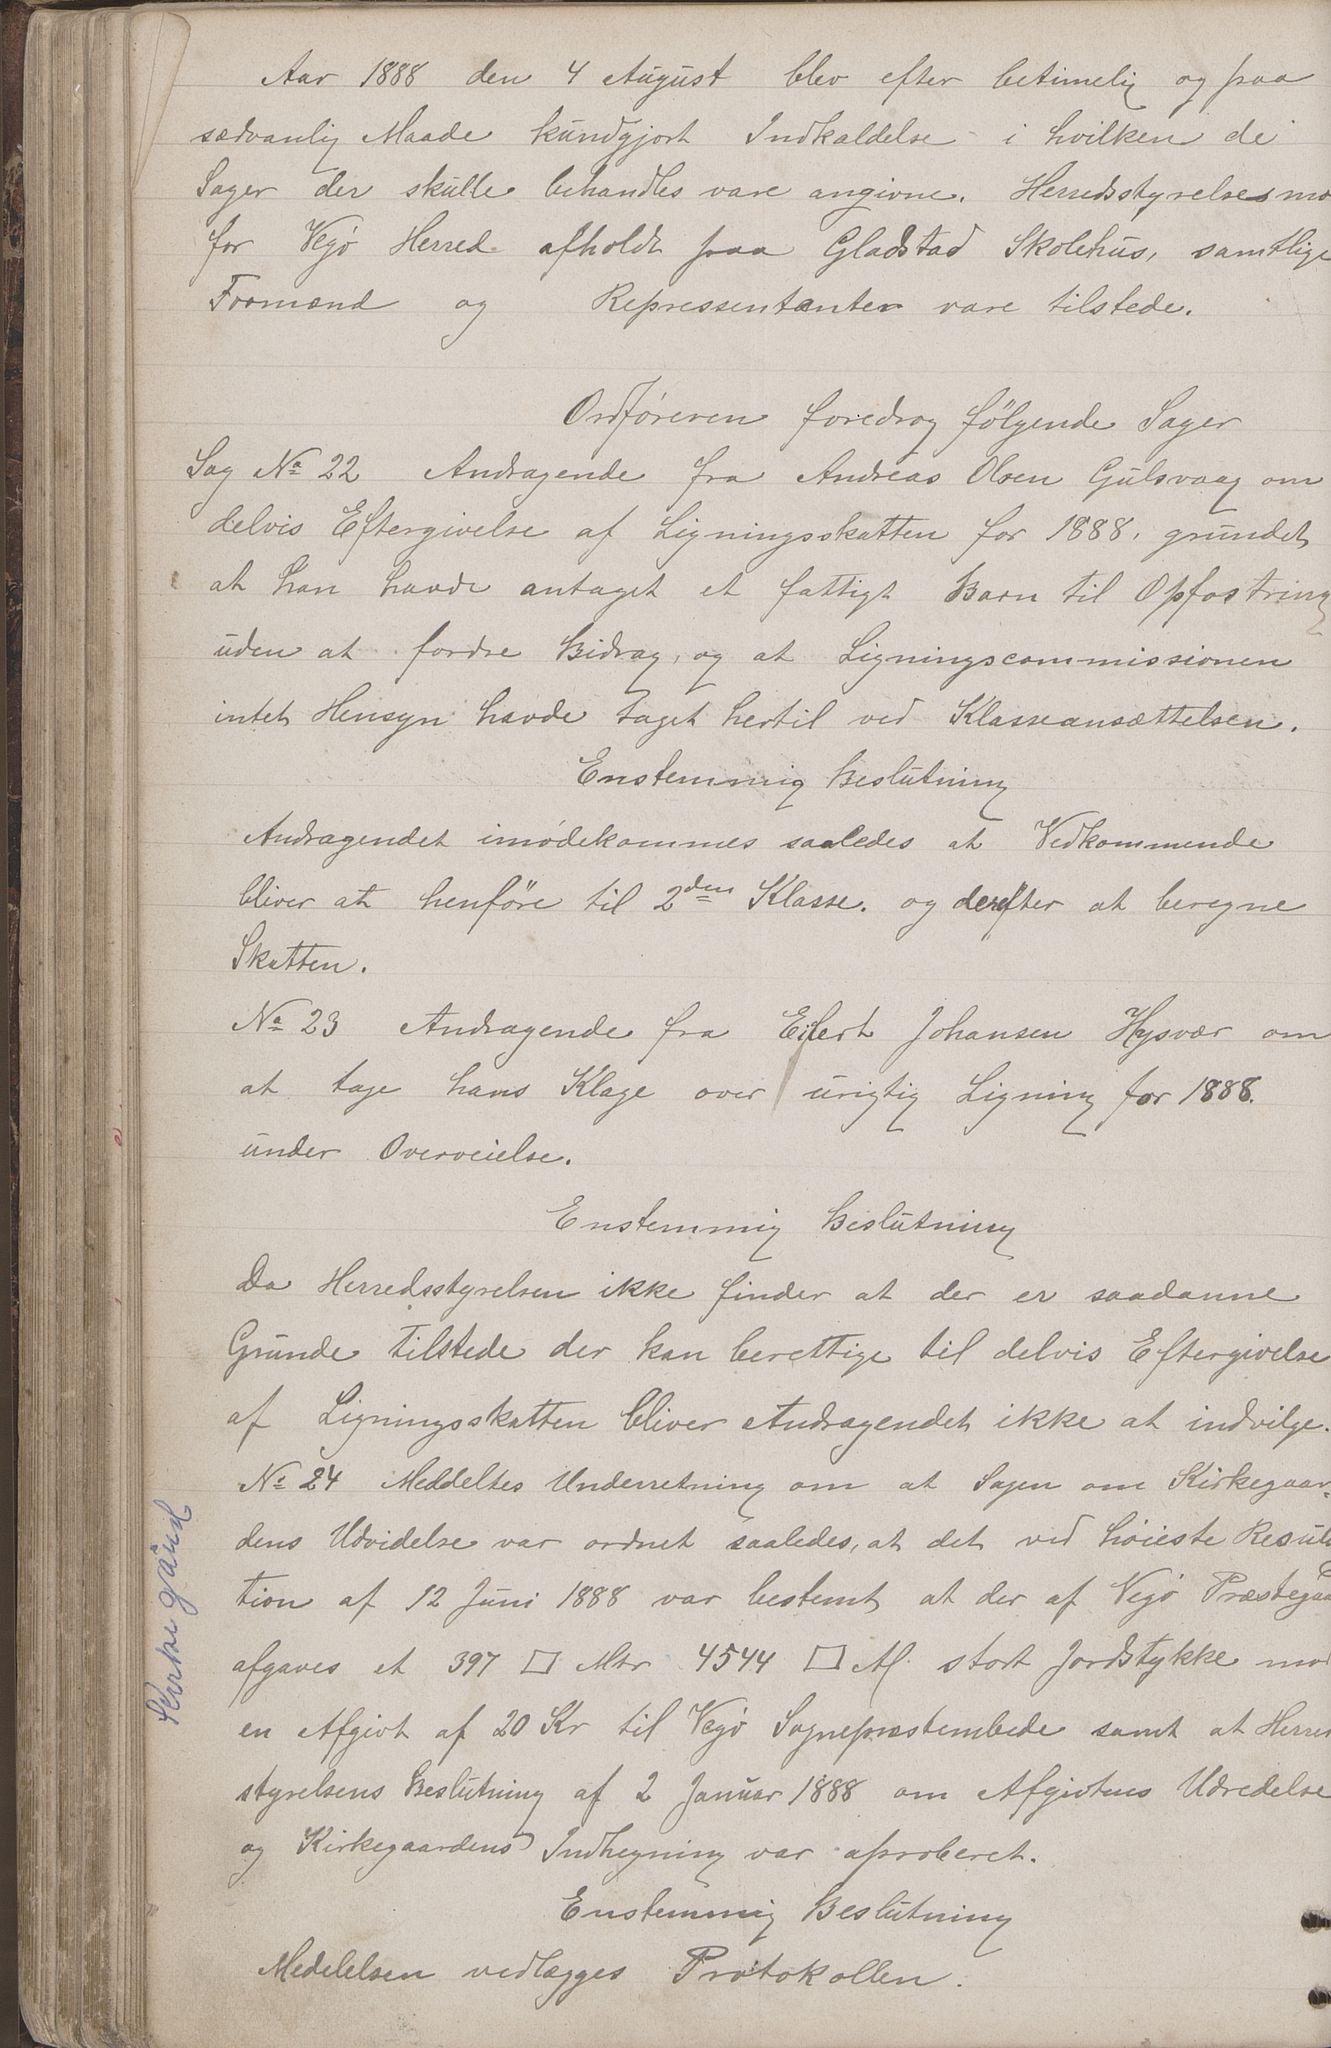 Aar 1888 den 4 August blev efter betimelig og paa
sædvanlig Maade kundgjort Indkaldelse i hvilken de
Sager der skulle behandles vare angivne. Herredsstyrelsesmø
for Vegø Herred afholdt paa Gladstad Skolehus, samtlige
Formænd og Repressentanter vare tilstede.
Ordføreren foredrog følgende Sager
Sag No 22 Andragende fra Andreas Olsen Gulsvaag om
delvis Eftergivelse af Ligningsskatten for 1888, grundet
at han havde antaget et fattigt Barn til Opfostring
uden at fordre Bidrag, og at Ligningscommissionen
intet Hensyn havde taget hertil ved Klasseansættelsen.
Enstemmig Beslutning
Andragendet imødekommes saaledes at Vedkommende
bliver at henføre til 2den Klasse. og derefter at beregne
Skatten.
No 23 Andragende fra Eilert Johansen Hysvær om
at tage hans Klage over urigtig Ligning for 1888.
under Overveielse.
Enstemmig Beslutning
Da Herredsstyrelsen ikke finder at der er saadanne
Grunde tilstede der kan berettige til delvis Eftergivelse
af Ligningsskatten bliver Andragendet ikke at indvilge.
No 24 Meddeltes Underretning om at Sagen om Kirkegaar-
dens Udvidelse var ordnet saaledes, at det ved høieste Resulu
tion af 12 Juni 1888 var bestemt at der af Vegø Præstegaa
afgaves et 397 □ Mtr 4544 □ Al. stort Jordstykke mod
en Afgivt af 20 Kr til Vegø Sognepræstembede samt at Herres
styrelsens Beslutning af 2 Januar 1888 om Afgivtens Udredelse
og Kirkegaardens Indhegning var aproberet.
Enstemmig Beslutning
Medelelsen vedlægges Protokollen.